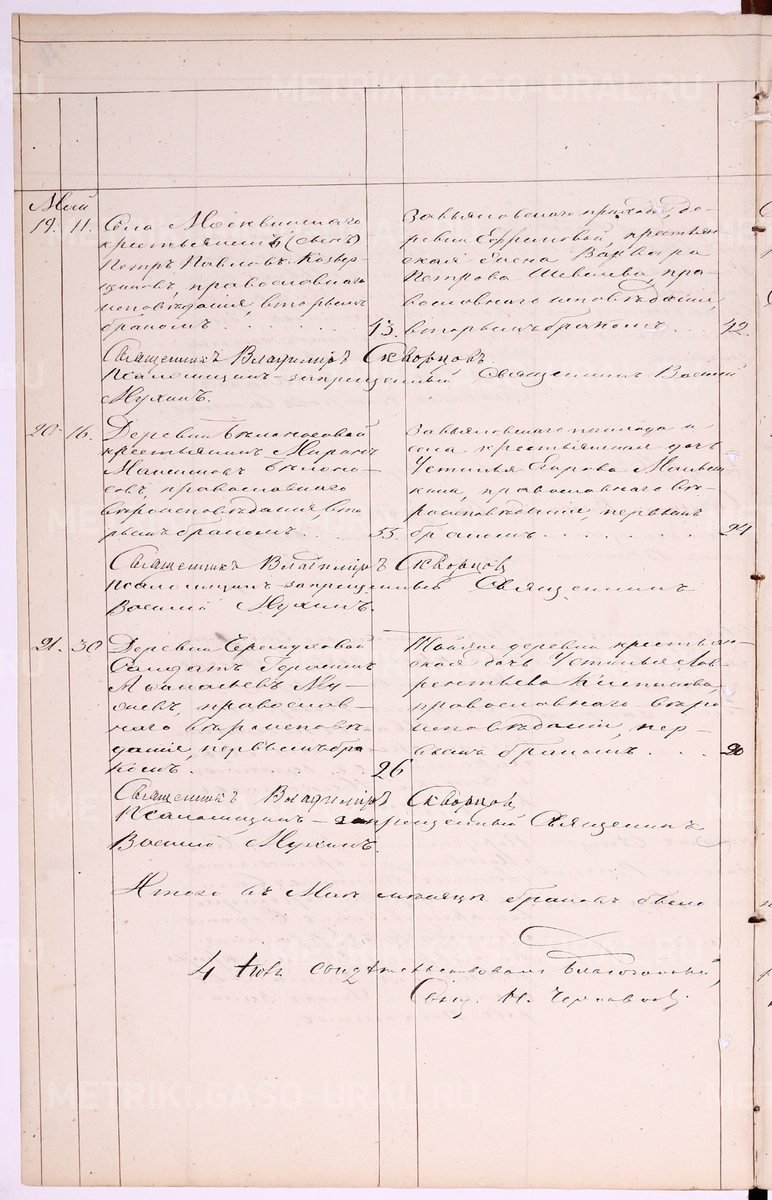 Май
19. 11. Села Москвинскаго
крестьянинъ (сынъ)
Петръ Павловъ
православнаго
исповѣданія, вторымъ
бракомъ 43.
Завьяловскаго прихода, де-
ревни Ефремовой, крестьян-
ская жена Варвара
Петрова Шевелева, пра-
вославнаго исповѣданія,
вторымъ бракомъ 42.
Священникъ Владиміръ Скворцовъ.
Псаломщикъ-запрещенный Священникъ Василій
Мухинъ.
20. 16. Деревни Белоносовой
крестьянинъ Миронъ
Максимовъ Белоно-
совъ, православнаго
вѣроисповѣданія, вто-
рымъ бракомъ 55.
Завьяловскаго прихода и
села крестьянская дочь
Устинья
православнаго вѣ-
роисповѣданія, первымъ
бракомъ 24
Священникъ Владиміръ Скворцовъ
Псаломщикъ-запрещенный Священникъ
Василій Мухинъ.
21. 30 Деревни Черемуховой
Солдатъ Герасимъ
Афанасьевъ
православ-
наго вѣроисповѣ-
данія, первымъ бра-
комъ. 26
Той же деревни крестьян-
ская дочь Устинья Лав-
рентьева
православнаго вѣро
исповѣданія, пер-
вымъ бракомъ 20
Священникъ Владиміръ Скворцовъ
Псаломщикъ-запрещенный Священникъ
Василій Мухинъ.
Итого въ Маѣ мѣсяцѣ браковъ было
4
Благочинный,
Свящ. Н.
METRIKI.GASO-URAL.RU